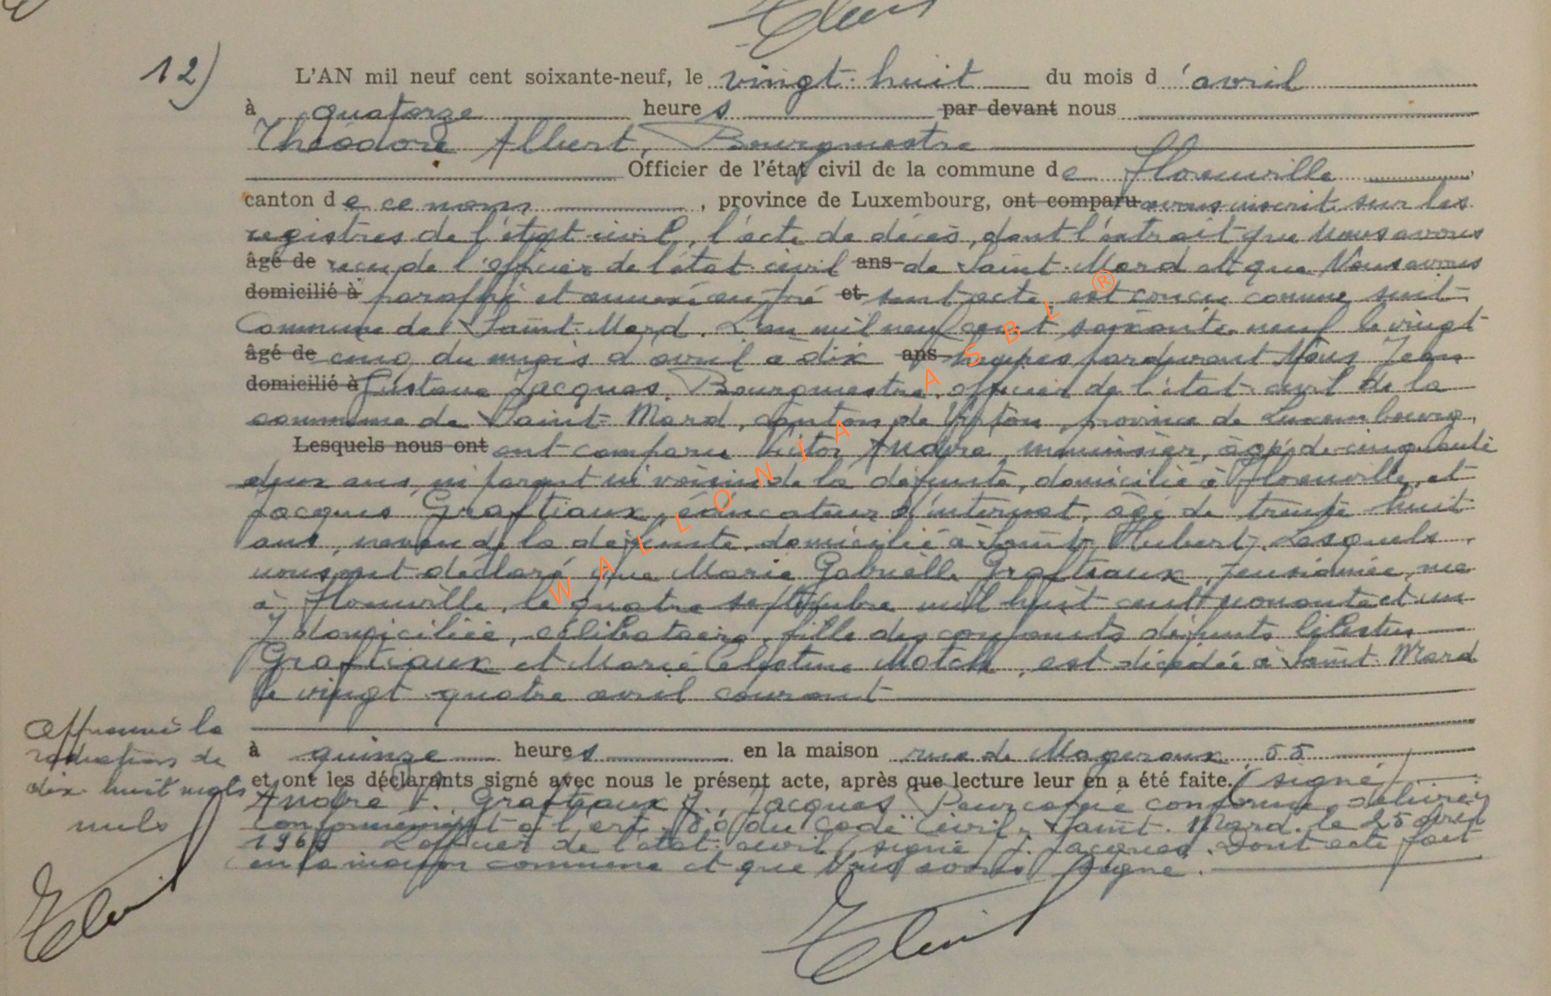 12) L'AN mil neuf cent soixante-neuf, le vingt-huit du mois d'avril
à quatorze heures par devant nous
Théodore Albert, Bourgmestre
Officier de l'état civil de la commune de Florenville
canton de ce nom, province de Luxembourg, ont comparu avons inscrit sur les
registres de l'état civil, l'acte de décès, dont l'extrait que Nous avons
âgé de reçu de l'officier de l'état civil ans de Saint-Mard et que Nous avons
domicilié à paraphé et annexé au et acte, est conçu comme suit
Commune de Saint-Mard. L'an mil neuf cent soixante-neuf le vingt
âgé de cinq du mois d'avril à dix ans heures pardevant Nous Jean
domicilié à Gustave Jacques, Bourgmestre, officier de l'état-civil de la
commune de Saint-Mard, canton de Virton, province de Luxembourg,
Lesquels nous ont ont comparu Victor André, menuisier, âgé de cinquante
deux ans, ni parent ni voisin de la défunte, domicilié à Florenville, et
Jacques Graftiaux, éducateur d'internat, âgé de trente huit
ans, neveu de la défunte, domicilié à Saint-Hubert. Lesquels
nous ont déclaré que Marie Gabrielle Graftiaux, pensionnée, née
à Florenville, le quatre septembre mil huit cent nonante et un
y domiciliée, célibataire, fille des conjoints défunts Célestin
Graftiaux et Marie Célestine Motch, est décédée à Saint-Mard
le vingt-quatre avril courant
à quinze heures en la maison rue de Mageroux 55
et ont les déclarants signé avec nous le présent acte, après que lecture leur en a été faite. (signé)
André V. Graftiaux J., Jacques Pour copie conforme délivrée
conformément à l'art. 80 du Code Civil. Saint-Mard, le 25 avril
1969 L'officier de l'état civil (signé) J. Jacques. Dont acte fait
en la maison commune et que Nous avons signé.
Approuvé la
radiation de
dix-huit mots
nuls
W A L L O N I A A S B L ®